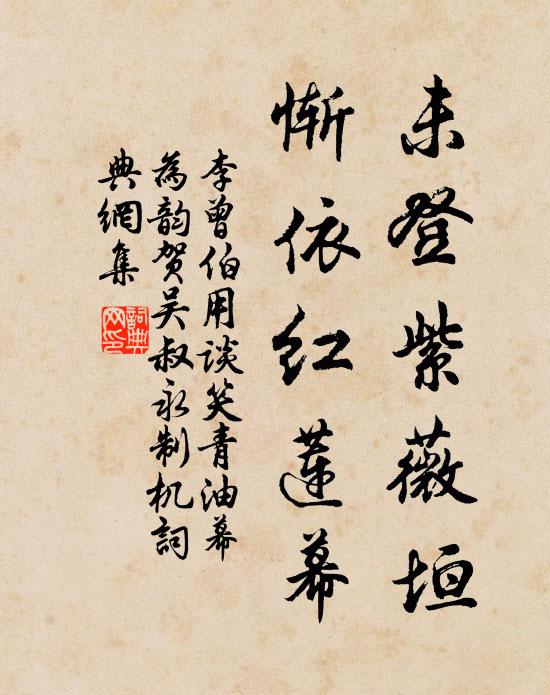 未登紫薇垣
惭依红莲幕
李曾伯用谈笑青油幕
为韵贺吴叔永制机词
典网集
詞典
网印